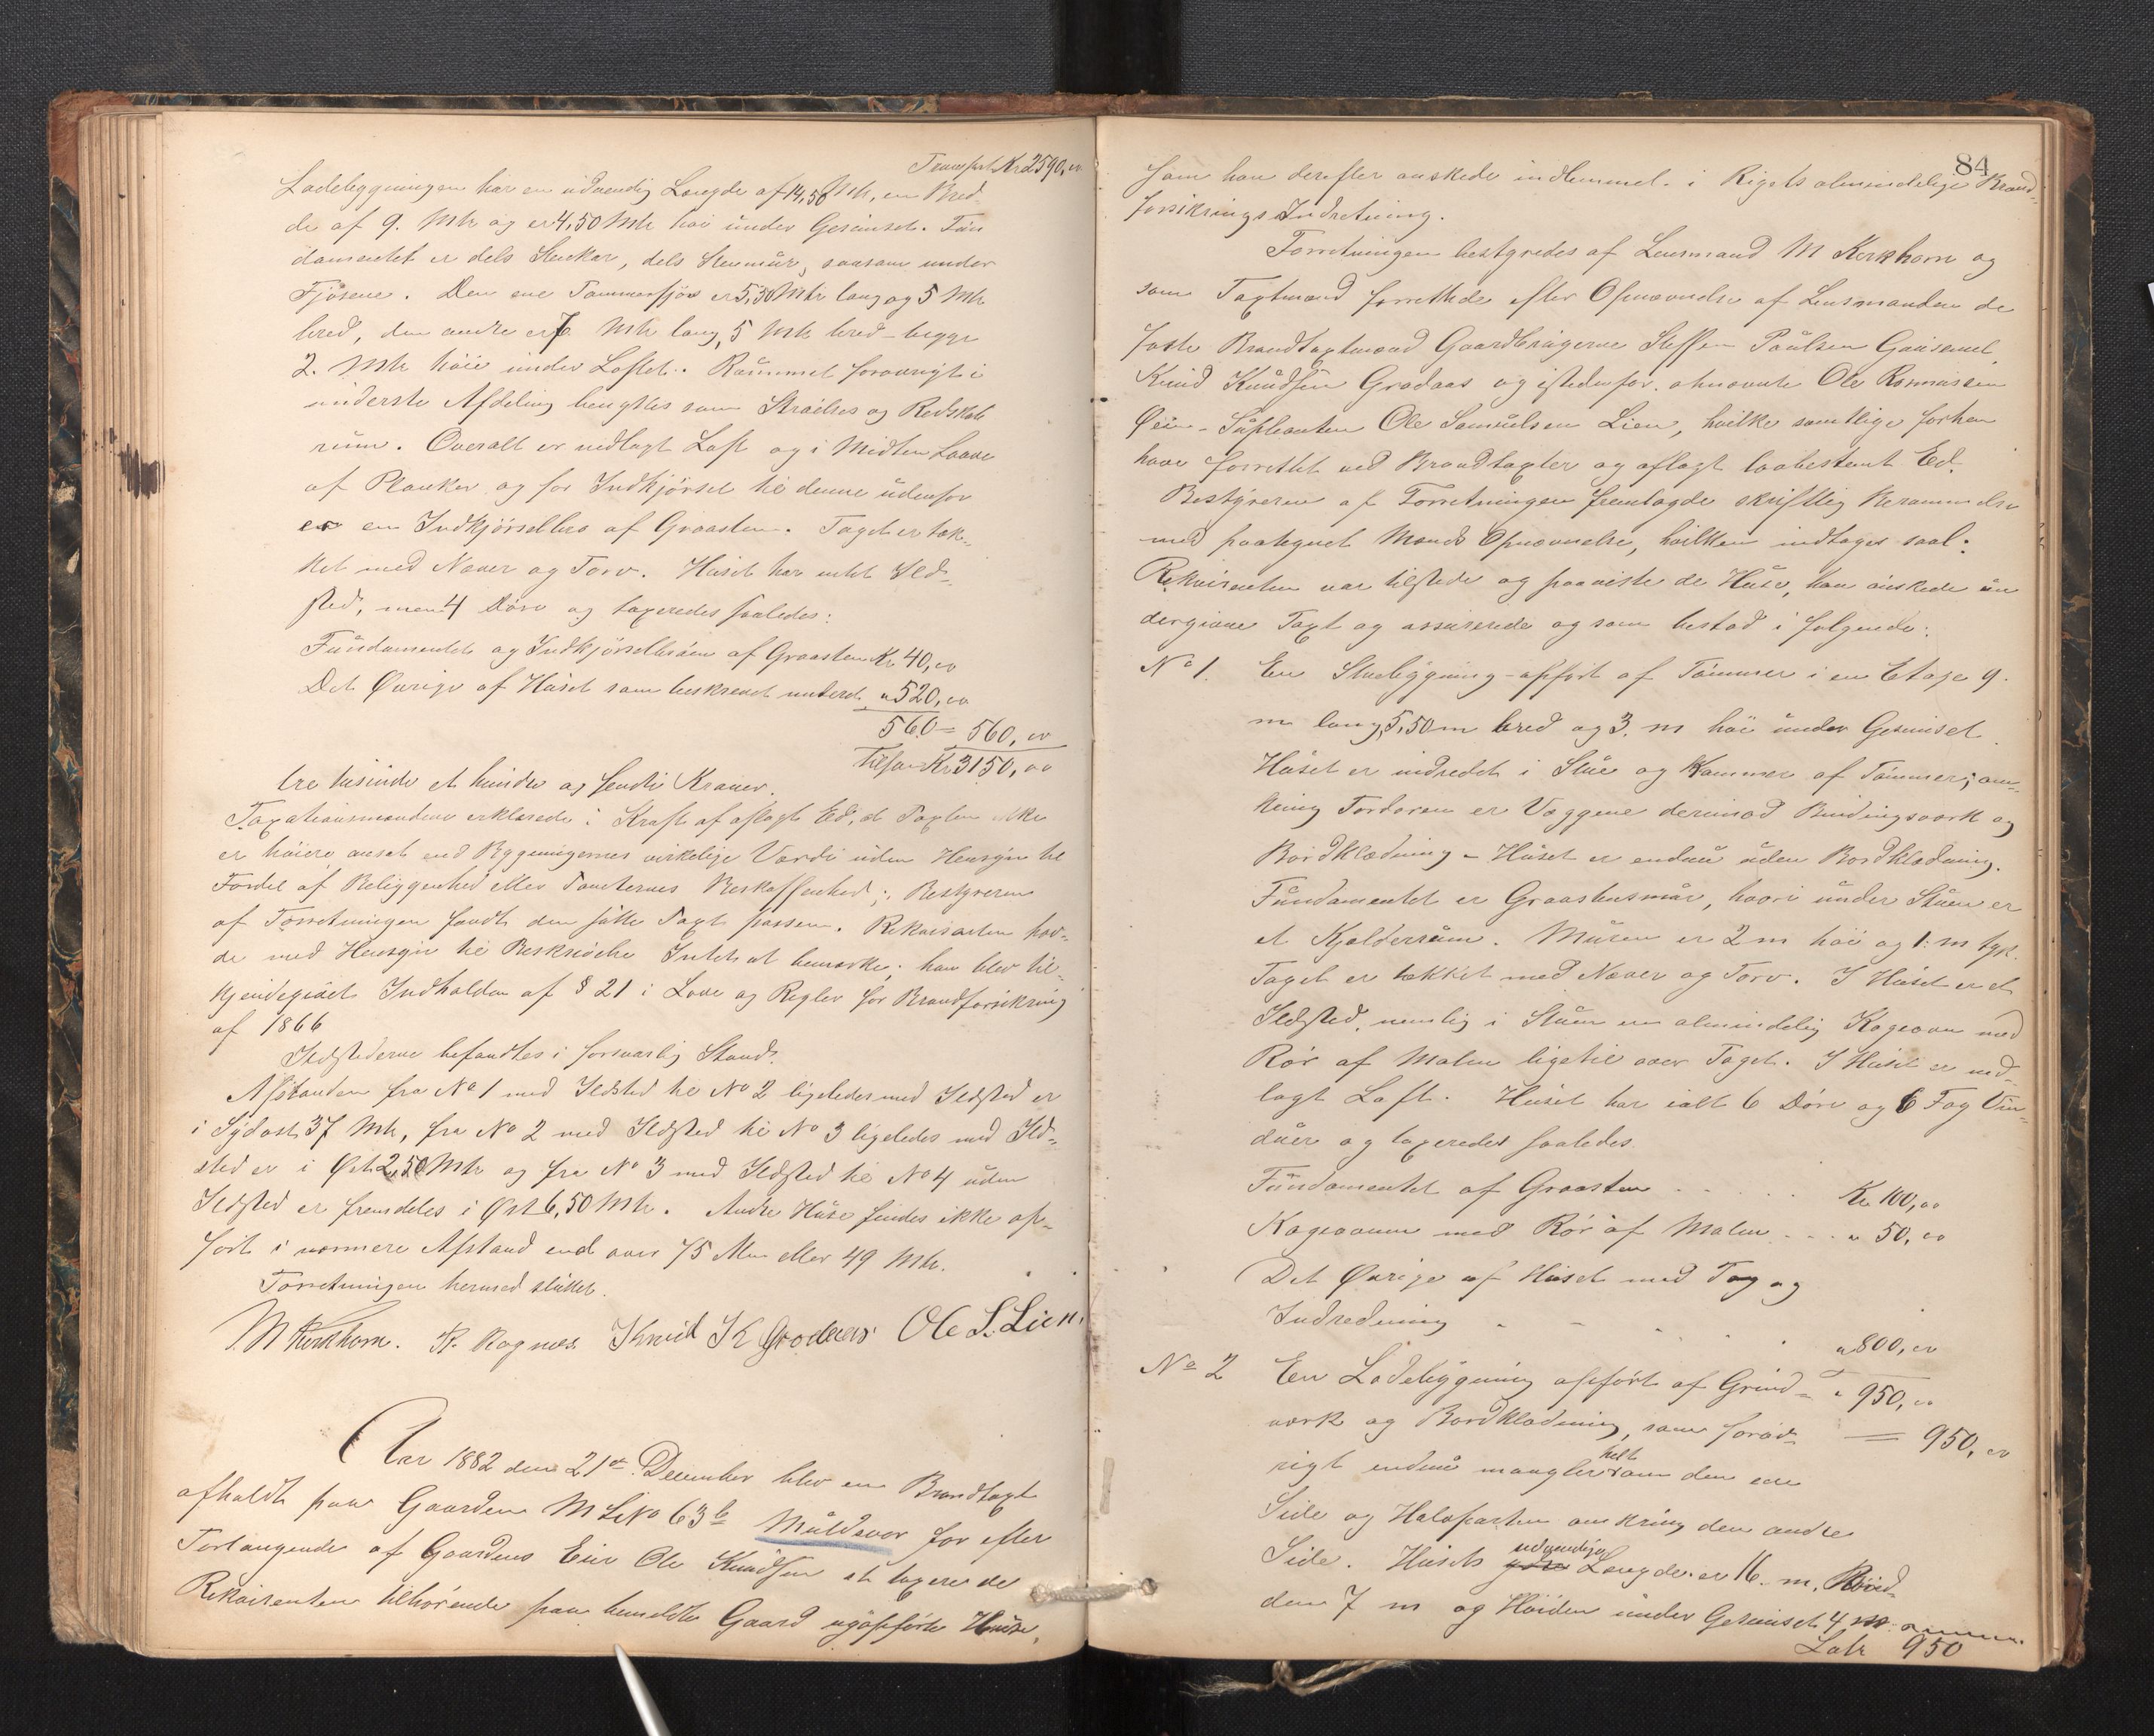 Transport Kr 2590,00
Ladebygningen har en udvendig Længde af 14,50 Mtr, en Bred-
de af 9. Mtr og er 4,50 Mtr høi under Gesimset. Fun
damentet er dels Stenkar, dels Stenmur, saasom under
Fjøsene. Den ene Tømmerfjøs er 5,30 Mtr lang og 5 Mtr
bred, den andre er 7 Mtr lang, 5 Mtr bred - begge
2. Mtr høie under Loftet. Rummet forøvrigt i
underste Afdeling benyttes som Straelses og Redskabs
rum. Overalt er nedlagt Loft og i Midten Laave
af Planker og for Indkjørsel til denne udenfor
er en Indkjørselbro af Graasten. Taget er tæk-
ket med Næver og Torv. Huset har intet Ild-
sted, men 4 Døre og taxeredes saaledes:
Fundamentet og Indkjørselbroen af Graasten Kr. 40,00
Det Øvrige af Huset som beskrevet " 520,00
560 = 560,00
Tilsam Kr 3150,00
tre tusinde et hundre og femti Kroner.
Taxationsmændene erklærede i Kraft af aflagt Ed, at Taxten ikke
er høiere ansat end Bygningernes virkelige Værdi uden Hensyn til
Fordel af Beliggenhed eller Tomternes Beskaffenhed; Bestyreren
af Forretningen fandt den satte Taxt passen. Rekvisenten hav-
de med Hensyn til Beskrivelse Intet at bemærke; han blev til-
kjendegivet Indholden af § 21 i Love og Regler for Brandforsikring
af 1866
Ildstederne befandtes i forsvarlig Stand.
Afstanden fra No 1 med Ildsted til No 2 ligeledes med Ildsted er
i Sydost 37 Mtr, fra No 2 med Ildsted til No 3 ligeledes med Ild-
sted er i Øst 2,50 Mtr og fra No 3 med Ildsted til No 4 uden
Ildsted er fremdeles i Øst 6,50 Mtr. Andre Huse findes ikke op-
ført i nærmere Afstand end over 75 Alen eller 49 Mtr.
Forretningen hermed sluttet.
M Kerkhorn. K. Ragnæs. Knud K Grodaas Ole S. Lien
Aar 1882 den 21de December blev en Brandtaxt
afholdt paa Gaarden M L No 63b Muldsvor for efter
Forlangende af Gaardens Eier Ole Knudsen at taxere de
Rekvisenten tilhørende paa bemeldte Gaard nyopførte Huse,
84
som han derefter ønskede indlemmet i Rigets almindelige Brand-
forsikrings Indretning.
Forretningen bestyredes af Lensmand M Kerkhorn og
som Taxtmænd forrettede efter Opnævnelse af Lensmanden de
faste Brandtaxtmænd Gaardbrugerne Steffen Paulsen
Knud Knudsen Grodaas og istedenfor opnævnte Ole Rasmussen
Øien - Supleanten Ole Samuelsen Lien, hvilke samtlige forhen
have forrettet ved Brandtaxter og aflagt lovbestemt Ed.
Bestyreren af Forretningen fremlagde skriftlig Berammelse
med paategnet Mænds Opnævnelse, hvilken indtages saal:
Rekvisenten var tilstede og paaviste de Huse, han ønskede un
dergivne Taxt og assurerede og som bestod i følgende:
No 1. En Stuebygning - opført af Tømmer i en Etage 9.
m lang, 5,50 m bred og 3. m høi under Gesimset
Huset er indredet i Stue og Kammer af Tømmer; om-
kring Fordøren er Væggene derimod Bindingsværk og
Bordklædning - Huset er endnu uden Bordklædning.
Fundamentet er Graastensmur, hvori under Stuen er
et Kjælderrum. Muren er 2 m høi og 1. m tyk.
Taget er tækket med Næver og Torv. I Huset er et
Ildsted, nemlig i Stuen en almindelig Kogeovn med
Rør af Malm ligetil over Taget. I Huset er ned-
lagt Loft. Huset har ialt 6 Døre og 6 Fag Vin-
duer og taxeredes saaledes.
Fundamentet af Graasten . . . . . Kr 100,00
Kogeovnen med Rør af Malm . . . " 50,00
Det Øvrige af Huset med Tag og
Indredning - - - " 800,00
" 950,00
= 950,00
No 2 En Ladebygning opført af Grind-
værk og Bordklædning, som forøv-
rigt endnu mangler helt om den ene
Side og Halvparten omkring den andre
Side. Husets udvendige Længde er 16. m, Bred-
den 7 m og Høiden under Gesimset 4 m
Latr 950